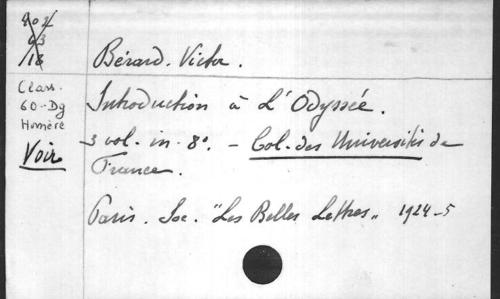 802
63
18
Bérard. Victor.
Class.
60-Dg
Homère
Voir
Introduction à L'Odyssée.
3 vol. in-8°. - Col. des Universités de
France.
Paris. Soc. "Les Belles Lettres" 1924-5